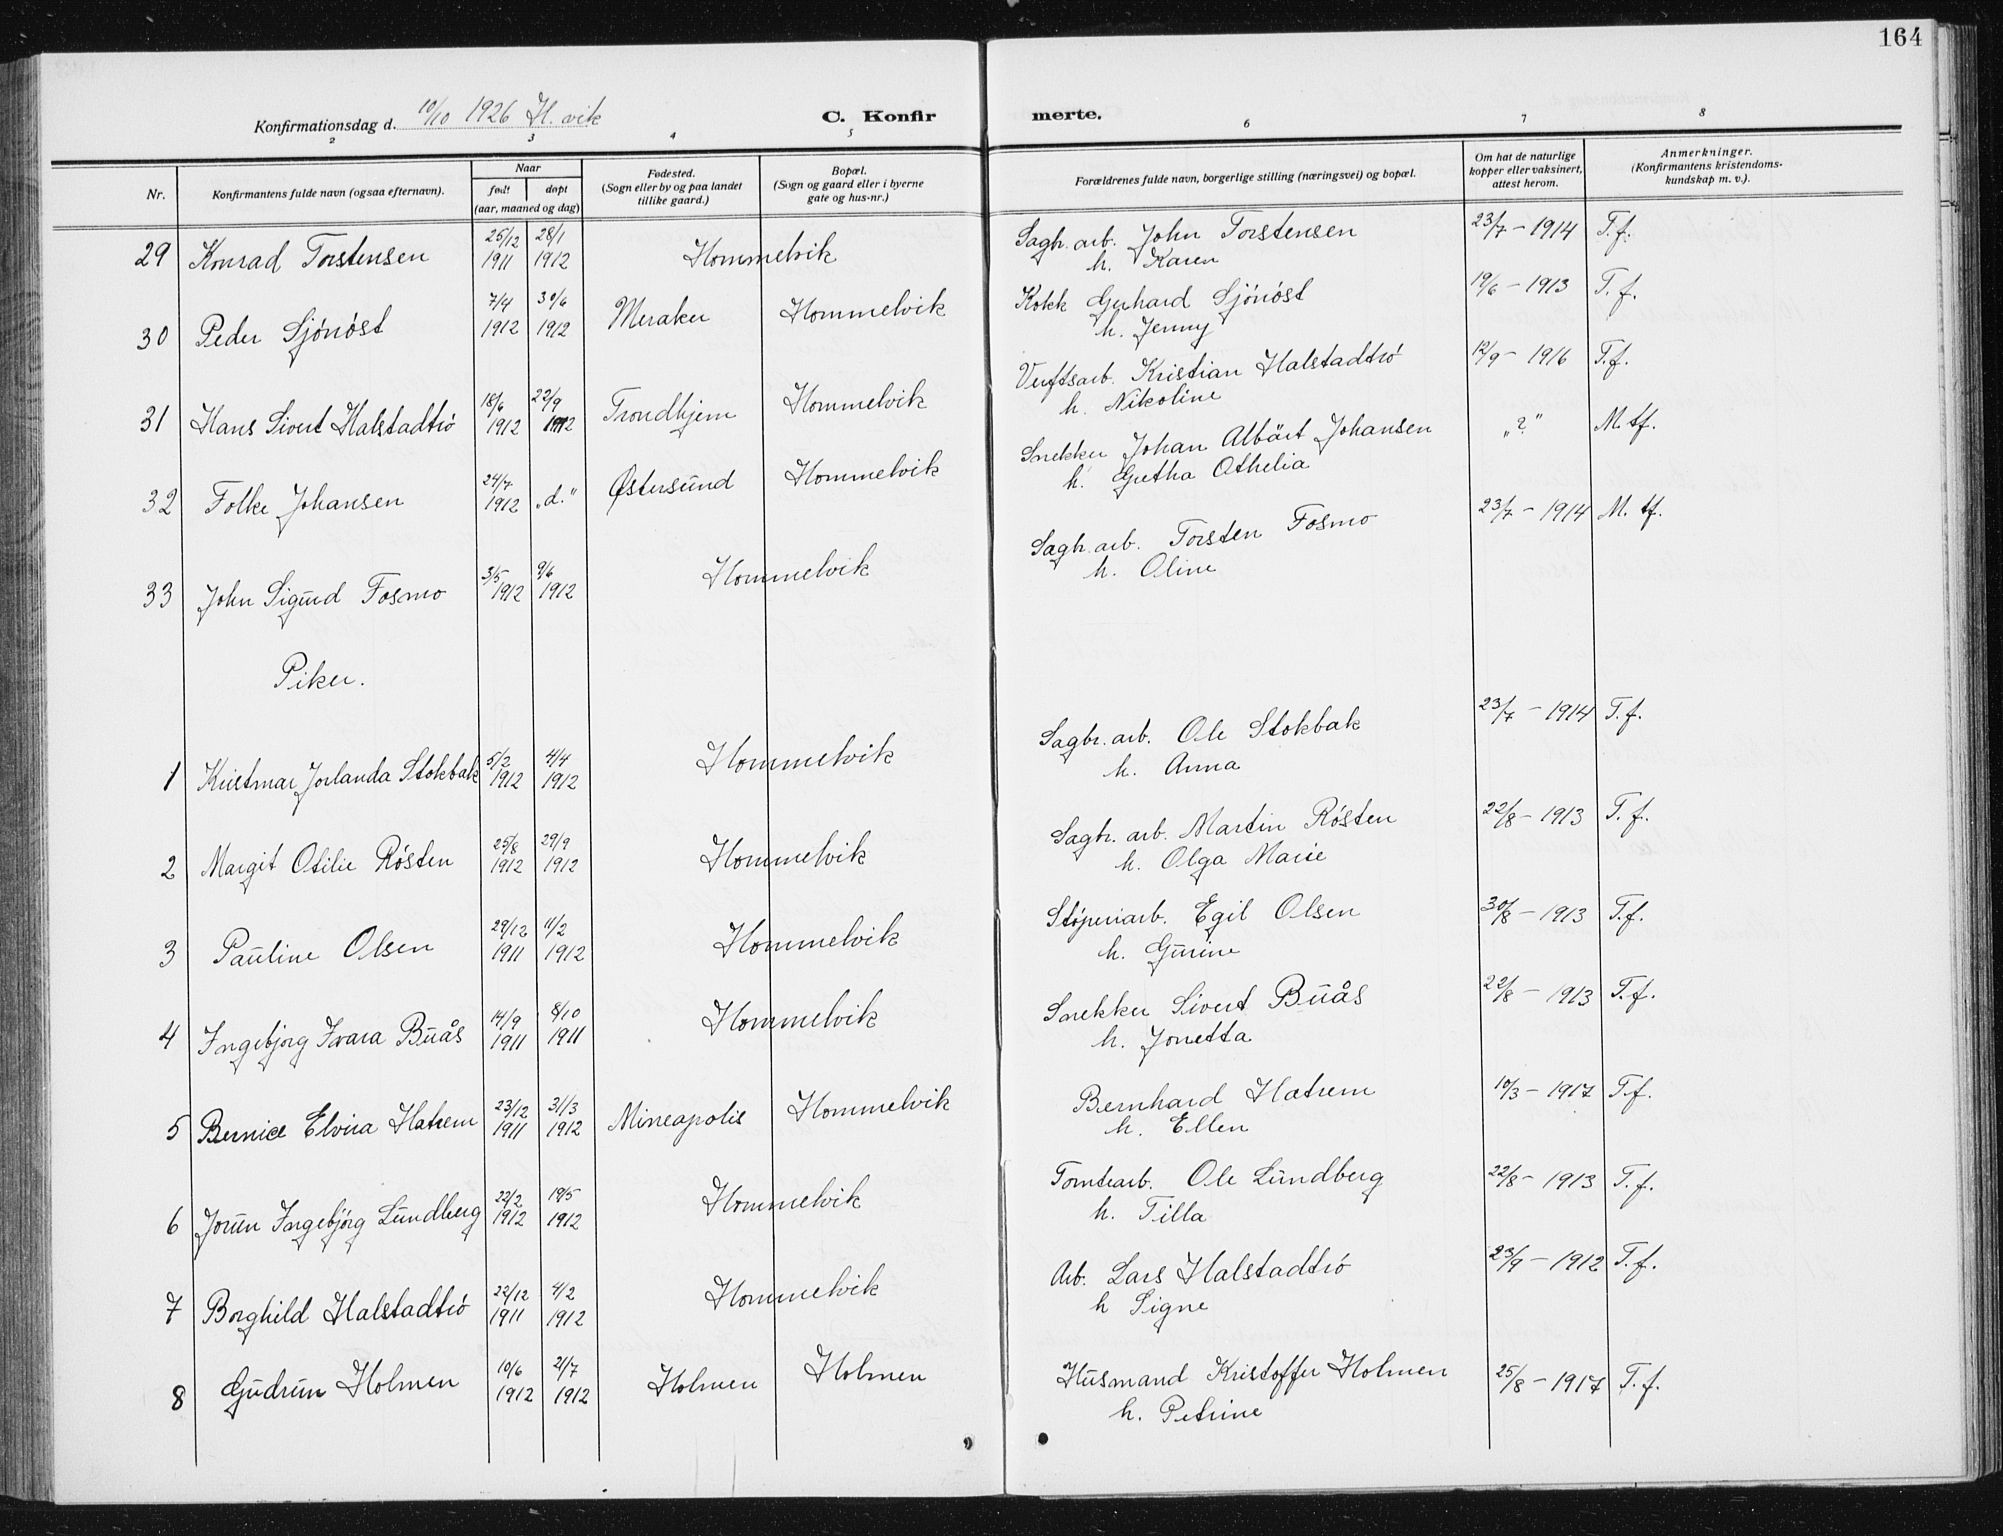 164
Konfirmationsdag d. 10/10 1926 H. vik
C. Konfirmerte.
2 3 4 5 6 7 8
Nr.
Konfirmantens fulde navn (ogsaa efternavn).
Naar
født
døpt
(aar, maaned og dag)
Fødested.
(Sogn eller by og paa landet
tillike gaard.)
Bopæl.
(Sogn og gaard eller i byerne
gate og hus-nr.)
Forældrenes fulde navn, borgerlige stilling (næringsvei) og bopæl.
Om hat de naturlige
kopper eller vaksinert,
attest herom.
Anmerkninger.
(Konfirmantens kristendoms-
kundskap m. v.).
29 Konrad Torstensen 25/12 1911 28/1 1912 Hommelvik Sagbr. arb. John Torstensen 23/7 - 1914 T.f.
h. Karen
30 Peder Sjönöst 7/4 1912 30/6 1912 Meraker Hommelvik Kokk Gerhard Sjönöst 19/6 - 1913 T.f.
h. Jenny
31 Hans Sivert Halstadtrö 18/6 1912 22/9 1912 Trondhjem Hommelvik Verftsarb. Kristian Halstadtrö 12/9 - 1916 T.f.
h. Nikoline
32 Folke Johansen 24/7 1912 „d." Østersund Hommelvik Snekker Johan Albärt Johansen „?" M.tf.
h. Gretha Othelia
33 John Sigurd Fosmo 3/5 1912 9/6 1912 Hommelvik Sagbr. arb. Torsten Fosmo 23/7 - 1914 M. tf.
h. Oline
Piker.
1 Kristmar Jorlanda Stokbak 5/2 1912 4/4 1912 Hommelvik Sagbr. arb. Ole Stokbak 23/7 - 1914 T.f.
h. Anna
2 Margit Otilie Rösten 25/8 1912 29/9 1912 Hommelvik Sagbr. arb. Martin Rösten 22/8 - 1913 T.f.
h. Olga Marie
3 Pauline Olsen 29/12 1911 11/2 1912 Hommelvik Støperiarb. Egil Olsen 30/8 - 1913 T.f.
h. Gurine
4 Ingebjörg Ivara Buås 14/9 1911 8/10 1911 Hommelvik Snekker Sivert Buås 22/8 - 1913 T.f.
h. Jonetta
5 Bernice Elvira Hatrem 23/12 1911 31/3 1912 Mineapolis Hommelvik Bernhard Hatrem 10/3 - 1917 T.f.
h. Ellen
6 Jorun Ingebjörg Lundberg 22/2 1912 19/5 1912 Hommelvik Tomtearb. Ole Lundberg 22/8 - 1913 T.f.
h. Tilla
7 Borghild Halstadtrö 22/12 1911 4/2 1912 Hommelvik Arb. Lars Halstadtrö 23/9 - 1912 T.f.
h Signe
8 Gudrun Holmen 10/6 1912 21/7 1912 Holmen Holmen Husmand Kristoffer Holmen 25/8 - 1917 T.f.
h. Petrine